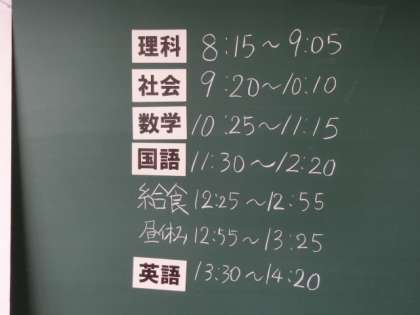 理科 8:15～9:05
社会 9:20～10:10
数学 10:25～11:15
国語 11:30～12:20
給食 12:25～12:55
昼休み 12:55～13:25
英語 13:30～14:20